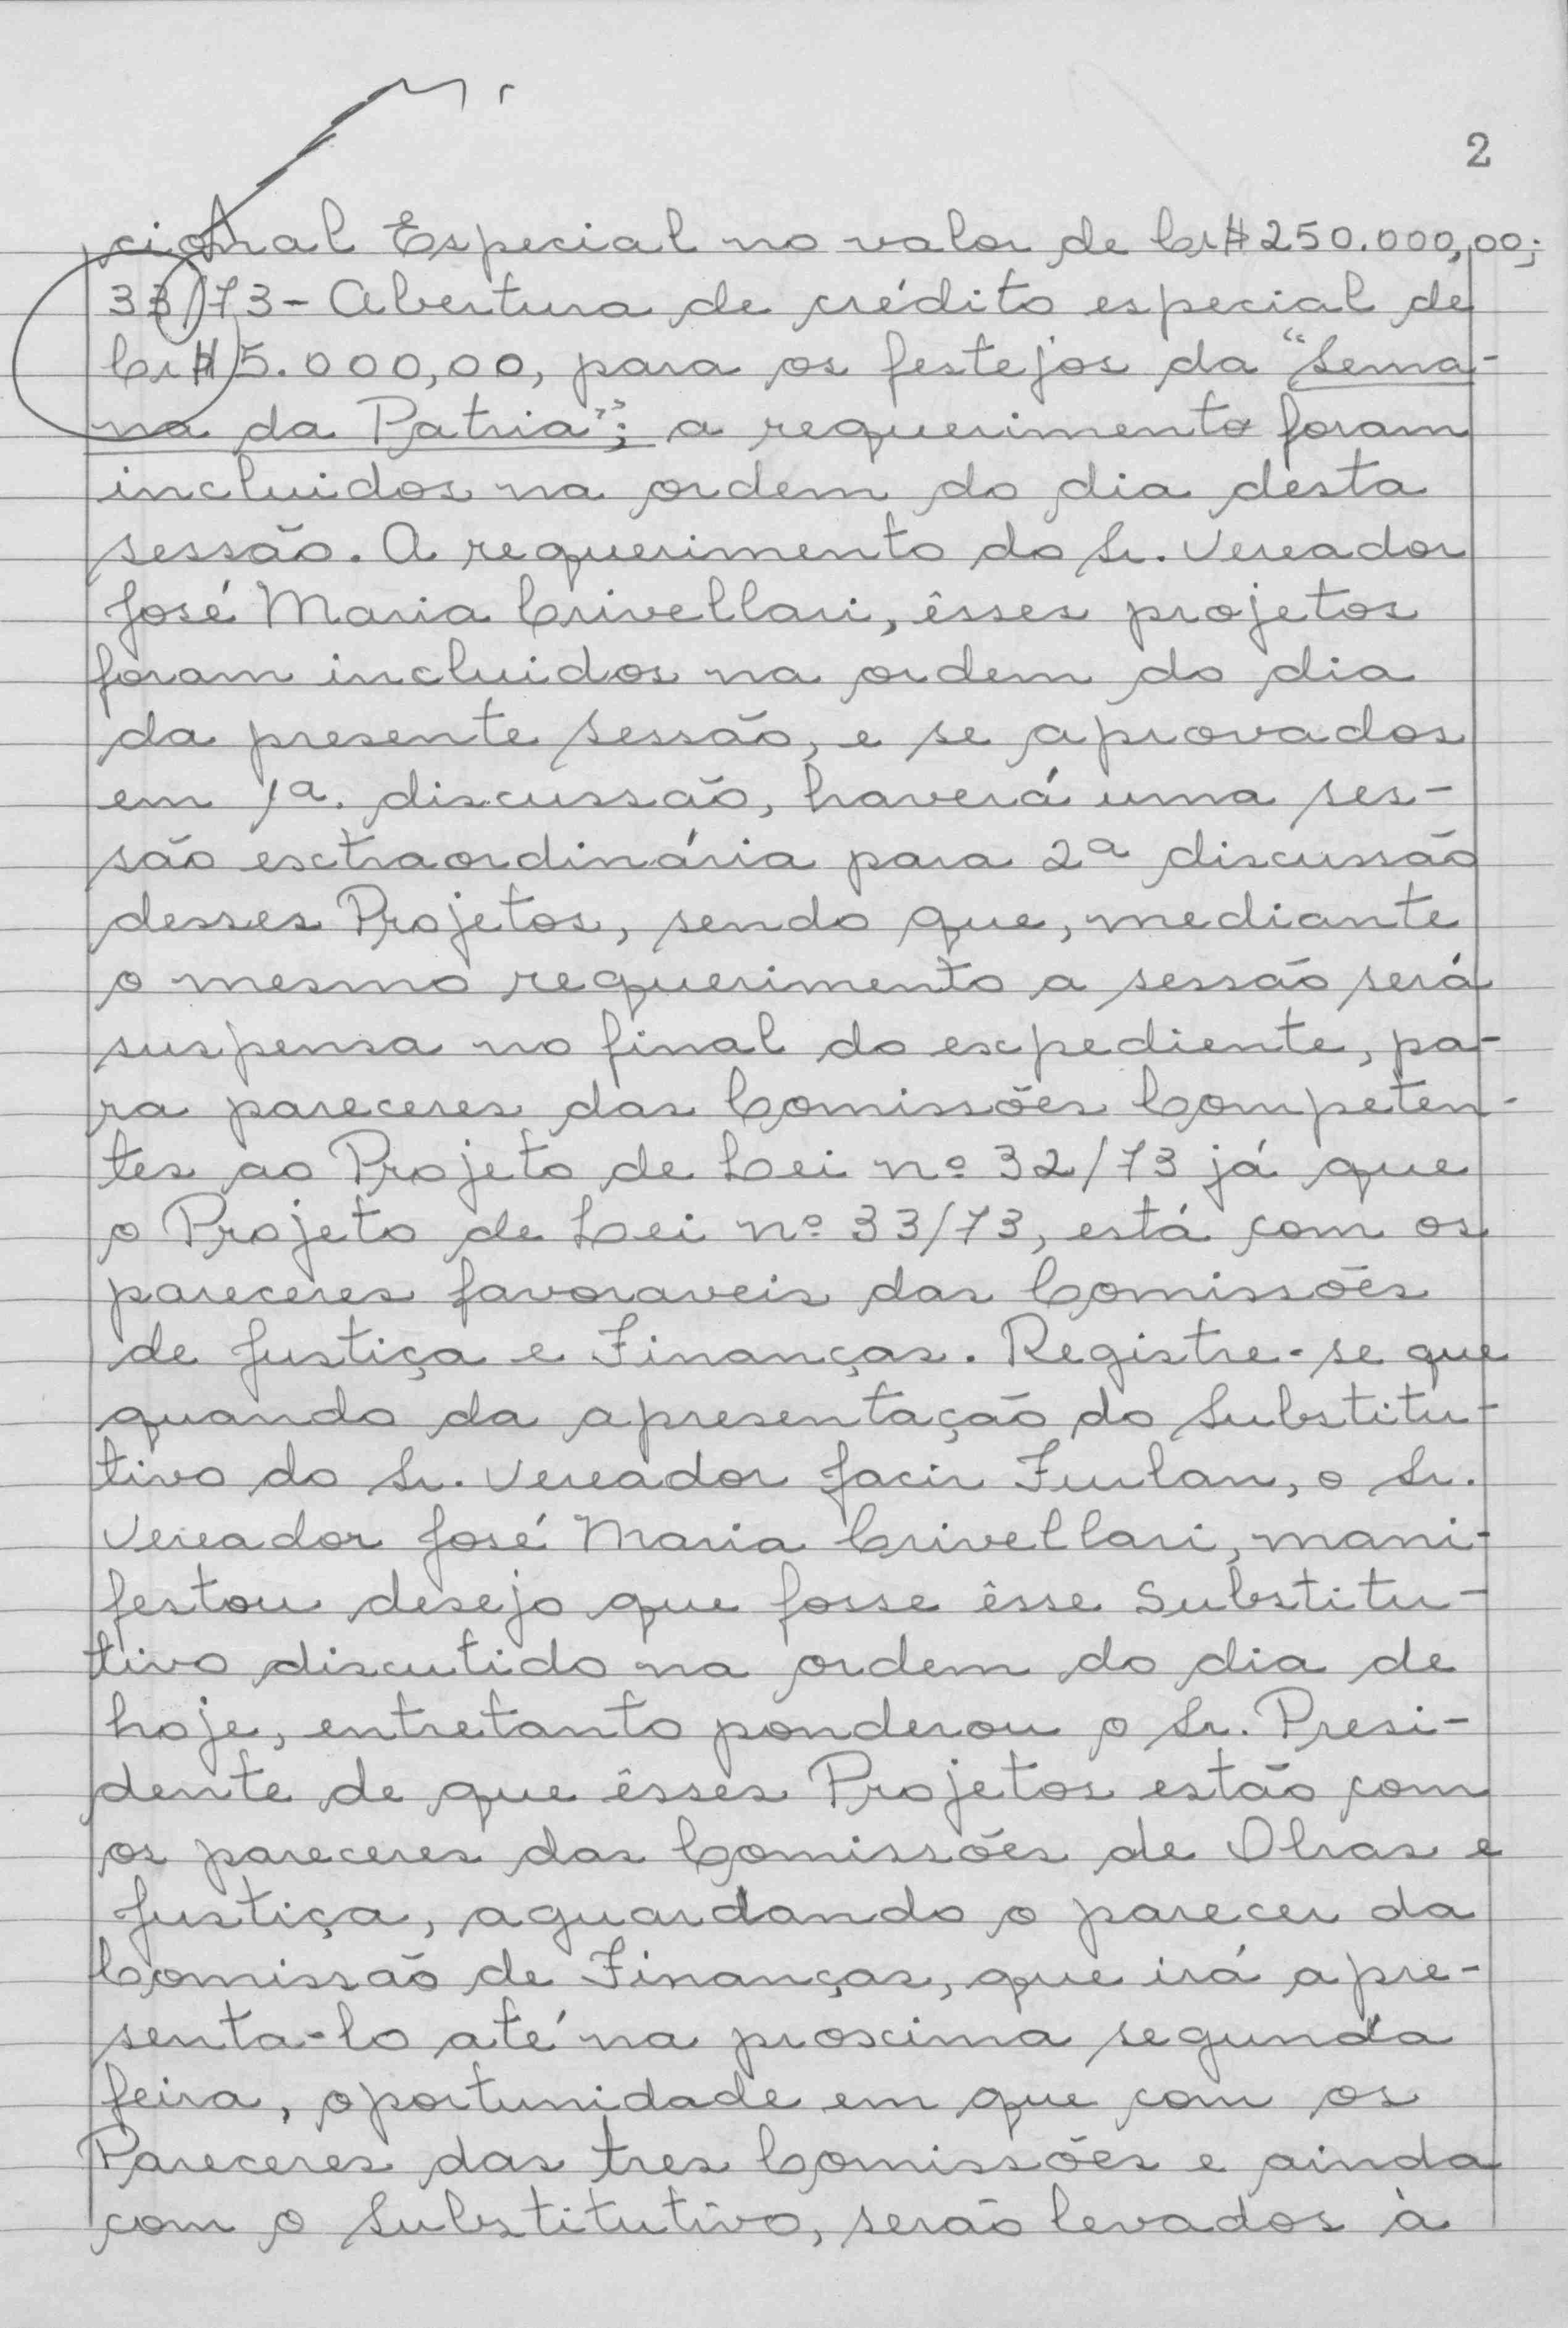 2
cional Especial no valor de Cr$ 250.000,00;
33/73 - Abertura de crédito especial de
Cr$ 5.000,00, para os festejos da "Sema-
na da Patria"; a requerimento foram
incluidos na ordem do dia desta
sessão. A requerimento do Sr. Vereador
José Maria Crivellari, êsses projetos
foram incluidos na ordem do dia
da presente sessão, e se aprovados
em 1ª. discussão, haverá uma ses-
são extraordinária para 2ª discussão
desses Projetos, sendo que, mediante
o mesmo requerimento a sessão será
suspensa no final do expediente, pa-
ra pareceres das Comissões Competen-
tes ao Projeto de Lei nº 32/73 já que
o Projeto de Lei nº 33/73, está com os
pareceres favoraveis das Comissões
de Justiça e Finanças. Registre-se que
quando da apresentação do Substitu-
tivo do Sr. Vereador Jacir Furlan, o Sr.
Vereador José Maria Crivellari, mani-
festou desejo que fosse êsse Substitu-
tivo discutido na ordem do dia de
hoje, entretanto ponderou o Sr. Presi-
dente de que êsses Projetos estão com
os pareceres das Comissões de Obras e
Justiça, aguardando o parecer da
Comissão de Finanças, que irá apre-
senta-lo até na proxima segunda
feira, oportunidade em que com os
Pareceres das tres Comissões e ainda
com o Substitutivo, serão levados à